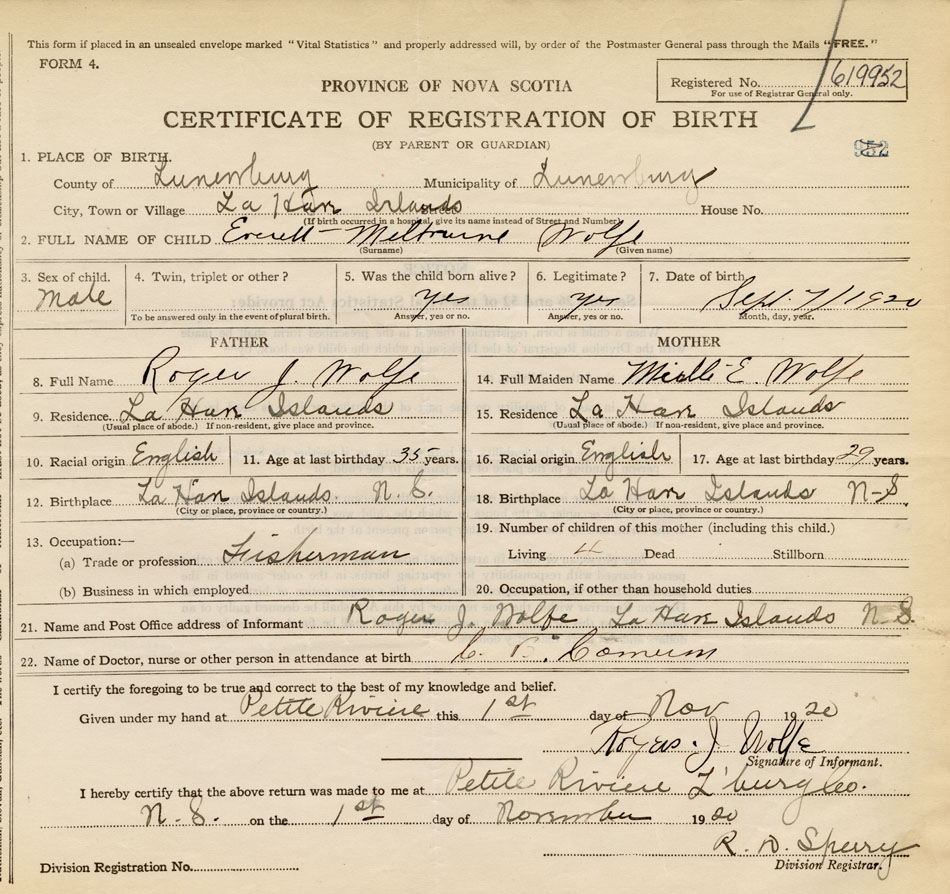 This form if placed in an unsealed envelope marked "Vital Statistics" and properly addressed will, by order of the Postmaster General pass through the Mails "FREE."
FORM 4.
Registered No. 619952
For use of Registrar General only.
PROVINCE OF NOVA SCOTIA
CERTIFICATE OF REGISTRATION OF BIRTH
(BY PARENT OR GUARDIAN)
1. PLACE OF BIRTH.
County of Lunenburg Municipality of Lunenburg
City, Town or Village La Have Islands Street House No.
(If birth occurred in a hospital, give its name instead of Street and Number)
2. FULL NAME OF CHILD Everett Melbourne Wolfe
(Surname) (Given name)
3. Sex of child. 4. Twin, triplet or other? 5. Was the child born alive? 6. Legitimate? 7. Date of birth
Male yes yes Sept. 7/1920
To be answered only in the event of plural birth. Answer, yes or no. Answer, yes or no. Month, day, year.
FATHER MOTHER
8. Full Name Roger J. Wolfe 14. Full Maiden Name E Wolfe
9. Residence. La Have Islands 15. Residence La Have Islands
(Usual place of abode.) If non-resident, give place and province. (Usual place of abode.) If non-resident, give place and province.
10. Racial origin English 11. Age at last birthday 35 years. 16. Racial origin English 17. Age at last birthday 29 years.
12. Birthplace La Have Islands. N. S. 18. Birthplace La Have Islands N-S
(City or place, province or country.) (City or place, province or country.)
13. Occupation:— 19. Number of children of this mother (including this child.)
(a) Trade or profession Fisherman Living 4 Dead Stillborn
(b) Business in which employed 20. Occupation, if other than household duties
21. Name and Post Office address of Informant Roger J. Wolfe La Have Islands N-S.
22. Name of Doctor, nurse or other person in attendance at birth C. B.
I certify the foregoing to be true and correct to the best of my knowledge and belief.
Given under my hand at Petite Riviere this 1st day of Nov 1920
Roger J Wolfe
Signature of Informant.
I hereby certify that the above return was made to me at Petite Riviere L'burg Co.
N. S. on the 1st day of November 1920
R. D. Sperry
Division Registration No. Division Registrar.